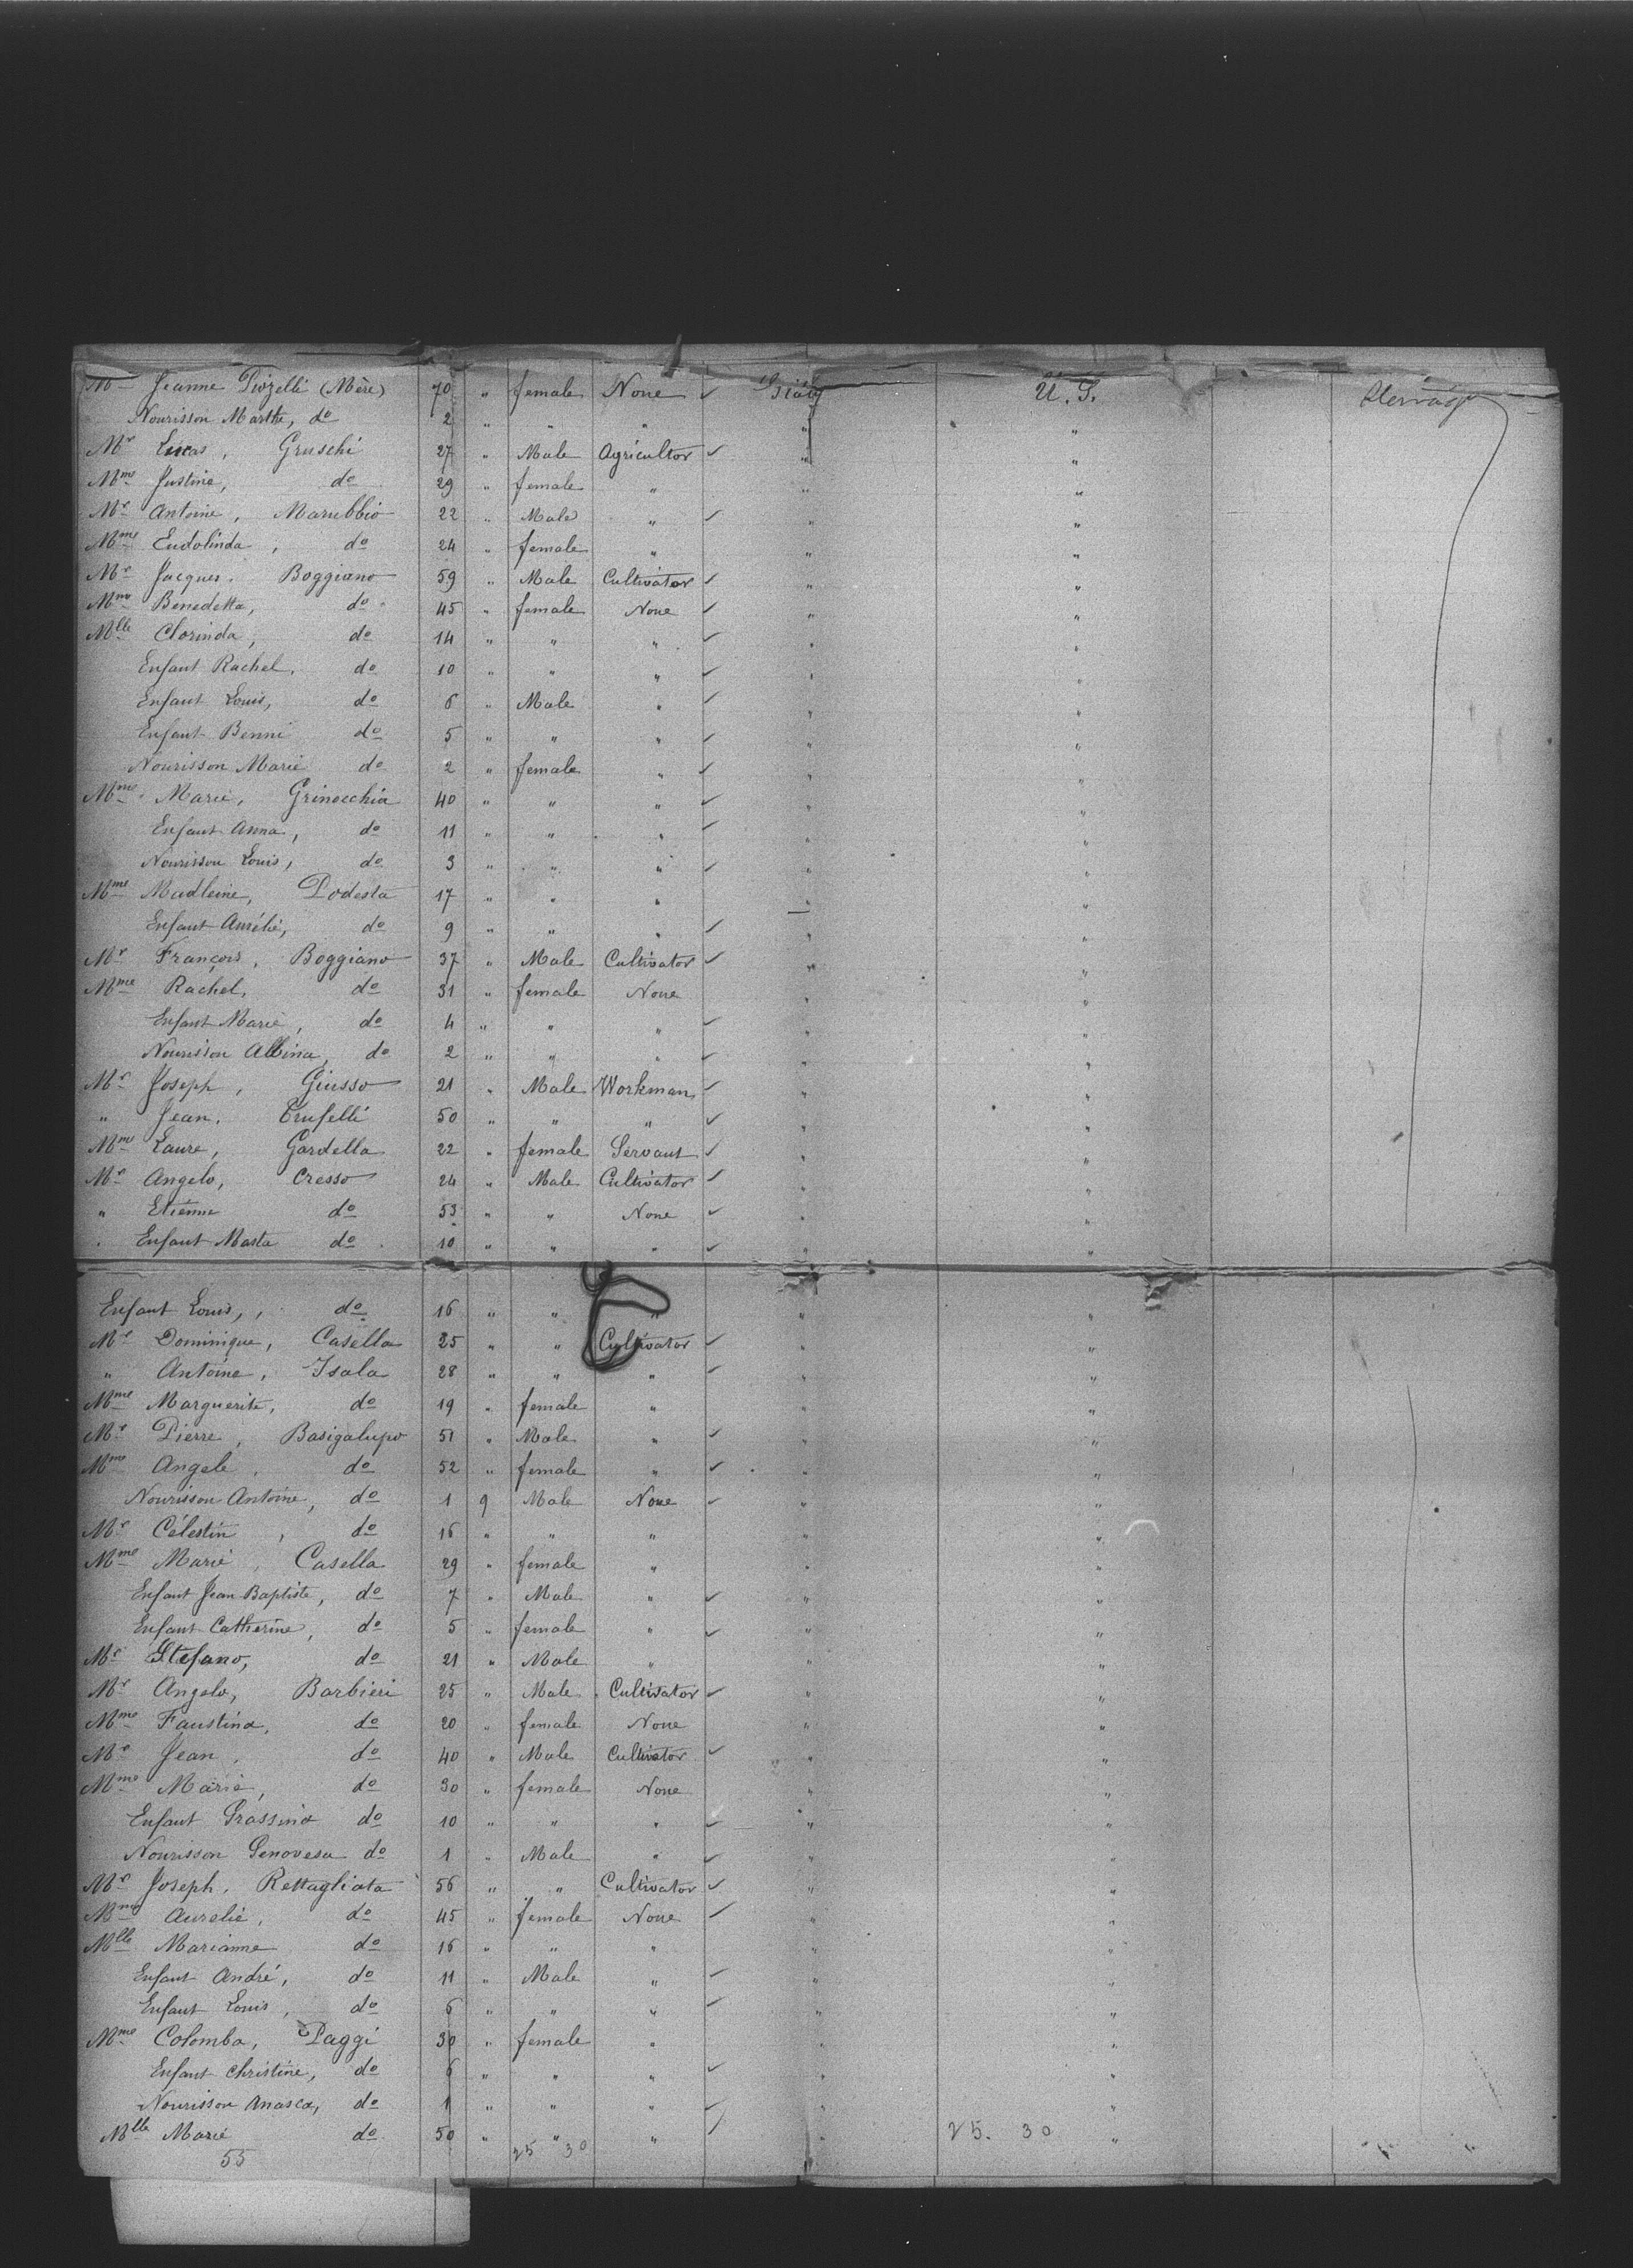 Mme Jeanne (Mère) 70 " female None ✓ Italy U. S. Steerage
Nourisson Marthe, do 2 " " " " "
Mr Lucas, Gruschi 27 " Male Agricultor ✓ " "
Mme Justine, do 29 " female " " "
Mr Antoine, Marubbio 22 " Male " ✓ " "
Mme Eudolinda, do 24 " female " " "
Mr Jacques, Boggiano 59 " Male Cultivator ✓ " "
Mme Benedetta, do 45 " female None ✓ " "
Mlle Clorinda, do 14 " " " ✓ " "
Enfant Rachel, do 10 " " " ✓ " "
Enfant Louis, do 6 " Male " ✓ " "
Enfant Benni do 5 " " " ✓ " "
Nourisson Marie do 2 " female " ✓ " "
Mme Marie, Grinocchia 40 " " " ✓ " "
Enfant Anna, do 11 " " " ✓ " "
Nourisson Louis, do 3 " " " ✓ " "
Mme Madleine, Podesta 17 " " " " "
Enfant Aurélie, do 9 " " " ✓ " "
Mr François, Boggiano 37 " Male Cultivator ✓ " "
Mme Rachel, do 31 " female None " "
Enfant Marie, do 4 " " " ✓ " "
Nourisson Albina, do 2 " " " ✓ " "
Mr Joseph, Giusso 21 " Male Workman ✓ " "
" Jean, Trufelli 50 " " " ✓ " "
Mme Laure, Gardella 22 " female Servant ✓ " "
Mr Angelo, Cresso 24 " Male Cultivator ✓ " "
" Etienne do 53 " " None ✓ " "
Enfant Marta do 10 " " " ✓ " "
Enfant Louis, do 16 " " " " "
Mr Dominique, Casella 25 " " Cultivator ✓ " "
" Antoine, Isala 28 " " " ✓ " "
Mme Marguerite, do 19 " female " " "
Mr Pierre, Basigalupo 51 " Male " ✓ " "
Mme Angele, do 52 " female " ✓ " "
Nourisson Antoine, do 1 9 Male None ✓ " "
Mr Célestin, do 16 " " " " "
Mme Marie, Casella 29 " female " " "
Enfant Jean Baptiste, do 7 " Male " ✓ " "
Enfant Catherine, do 5 " female " ✓ " "
Mr Stefano, do 21 " Male " " "
Mr Angelo, Barbieri 25 " Male Cultivator ✓ " "
Mme Faustina, do 20 " female None " "
Mr Jean, do 40 " Male Cultivator ✓ " "
Mme Marie, do 30 " female None " "
Enfant Grassina do 10 " " " ✓ " "
Nourisson Genovesa do 1 " Male " ✓ " "
Mr Joseph, Rettagliata 56 " " Cultivator ✓ " "
Mme Aurelie, do 45 " female None ✓ " "
Mlle Marianne do 16 " " " " "
Enfant André, do 11 " Male " ✓ " "
Enfant Louis, do 6 " " " ✓ " "
Mme Colomba, Paggi 30 " female " " "
Enfant Christine, do 6 " " " ✓ " "
Nourisson Anasca, do 1 " " " ✓ " "
Mlle Marie do 50 " " " ✓ " "
55 25 30 25. 30